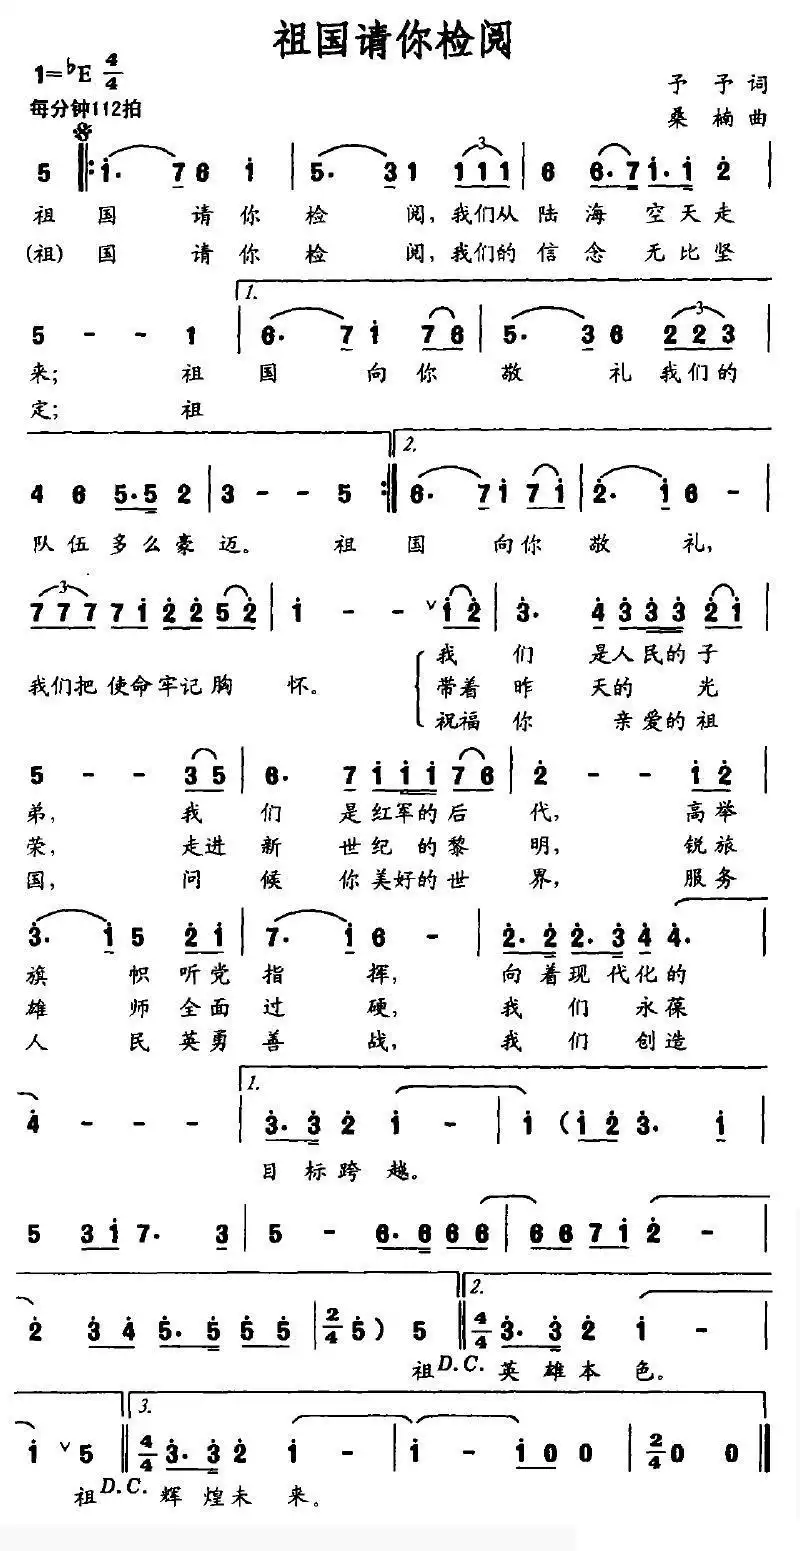 祖国请你检阅
1=♭E 4/4
予 予 词
每分钟112拍
桑 楠 曲
5 ‖: i. 7 6 i | 5. 3 1 1 1 1 | 6 6. 7 i. i 2 |
祖 国 请 你 检 阅, 我们从 陆 海 空天走
(祖) 国 请 你 检 阅, 我们的 信 念 无比坚
1.
5 - - 1 | 6. 7 i 7 6 | 5. 3 6 2 2 3 |
来; 祖 国 向 你 敬 礼 我们的
定; 祖
2.
4 6 5. 5 2 | 3 - - 5 :‖ 6. 7 i 7 i | 2. i 6 - |
队 伍 多 么 豪 迈。 祖 国 向 你 敬 礼,
7 7 7 7 i 2 2 5 2 | i - - ∨ i 2 | 3. 4 3 3 3 2 i |
我 们 们 是人民的子
我们把 使命牢记胸 怀。 带着 昨 天的 光
祝福 你 亲爱的祖
5 - - 3 5 | 6. 7 i i i 7 6 | 2 - - i 2 |
弟, 我 们 是红军的后 代, 高举
荣, 走进 新 世纪 的黎 明, 锐旅
国, 问 候 你美好的世 界, 服务
3. i 5 2 i | 7. i 6 - | 2. 2 2. 3 4 4. |
旗 帜 听党 指 挥, 向着现 代化的
雄 师 全面 过 硬, 我 们 永葆
人 民 英勇 善 战, 我 们 创造
1.
4 - - - | 3. 3 2 i - | i (i 2 3. i |
目 标 跨 越。
5 3 i 7. 3 | 5 - 6. 6 6 6 | 6 6 7 i 2 - |
2.
2 3 4 5. 5 5 5 | 2/4 5) 5 ‖ 4/4 3. 3 2 i - |
祖 D.C. 英 雄 本 色。
3.
i ∨ 5 ‖ 4/4 3. 3 2 i - | i - i 0 0 | 2/4 0 0 ‖
祖 D.C. 辉 煌 未 来。